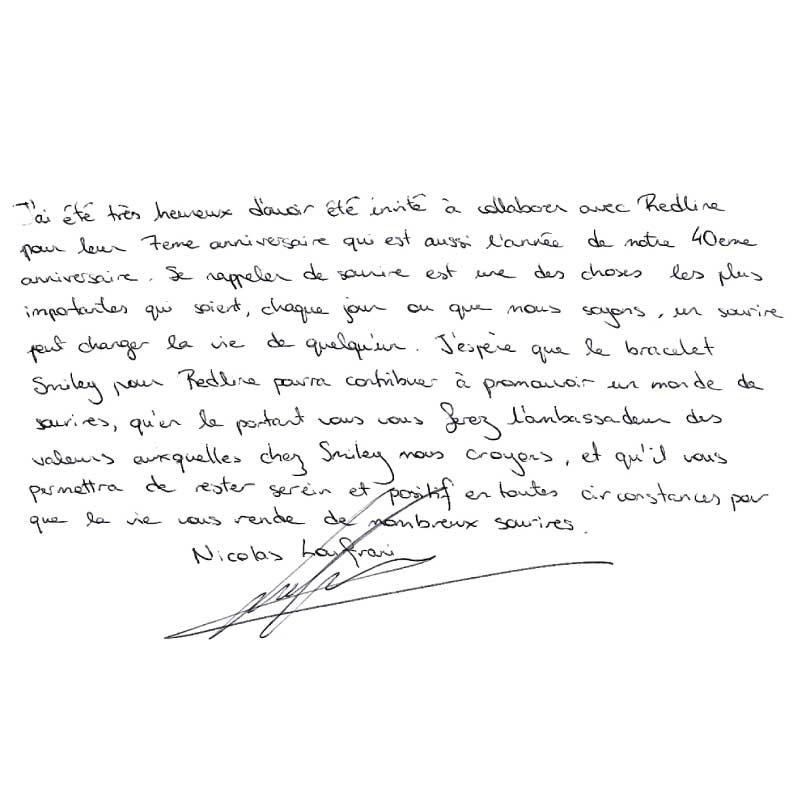 J'ai été très heureux d'avoir été invité à collaborer avec Redline
pour leur 7eme anniversaire qui est aussi l'année de notre 40eme
anniversaire. Se rappeler de sourire est une des choses les plus
importantes qui soient, chaque jour ou que nous soyons, un sourire
peut changer la vie de quelqu'un. J'espère que le bracelet
Smiley pour Redline pourra contribuer à promouvoir un monde de
sourires, qu'en le portant vous vous ferez l'ambassadeur des
valeurs auxquelles chez Smiley nous croyons, et qu'il vous
permettra de rester serein et positif en toutes circonstances pour
que la vie vous rende de nombreux sourires.
Nicolas Loufrani